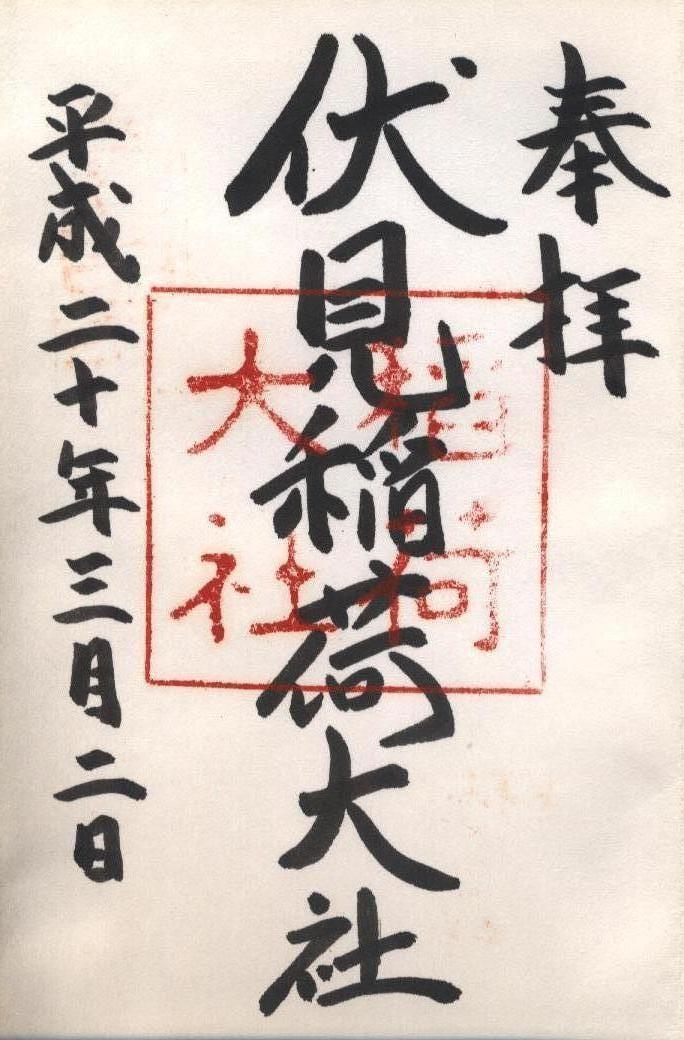 奉拝
伏見稲荷大社
稲荷
大社
平成二十年三月二日